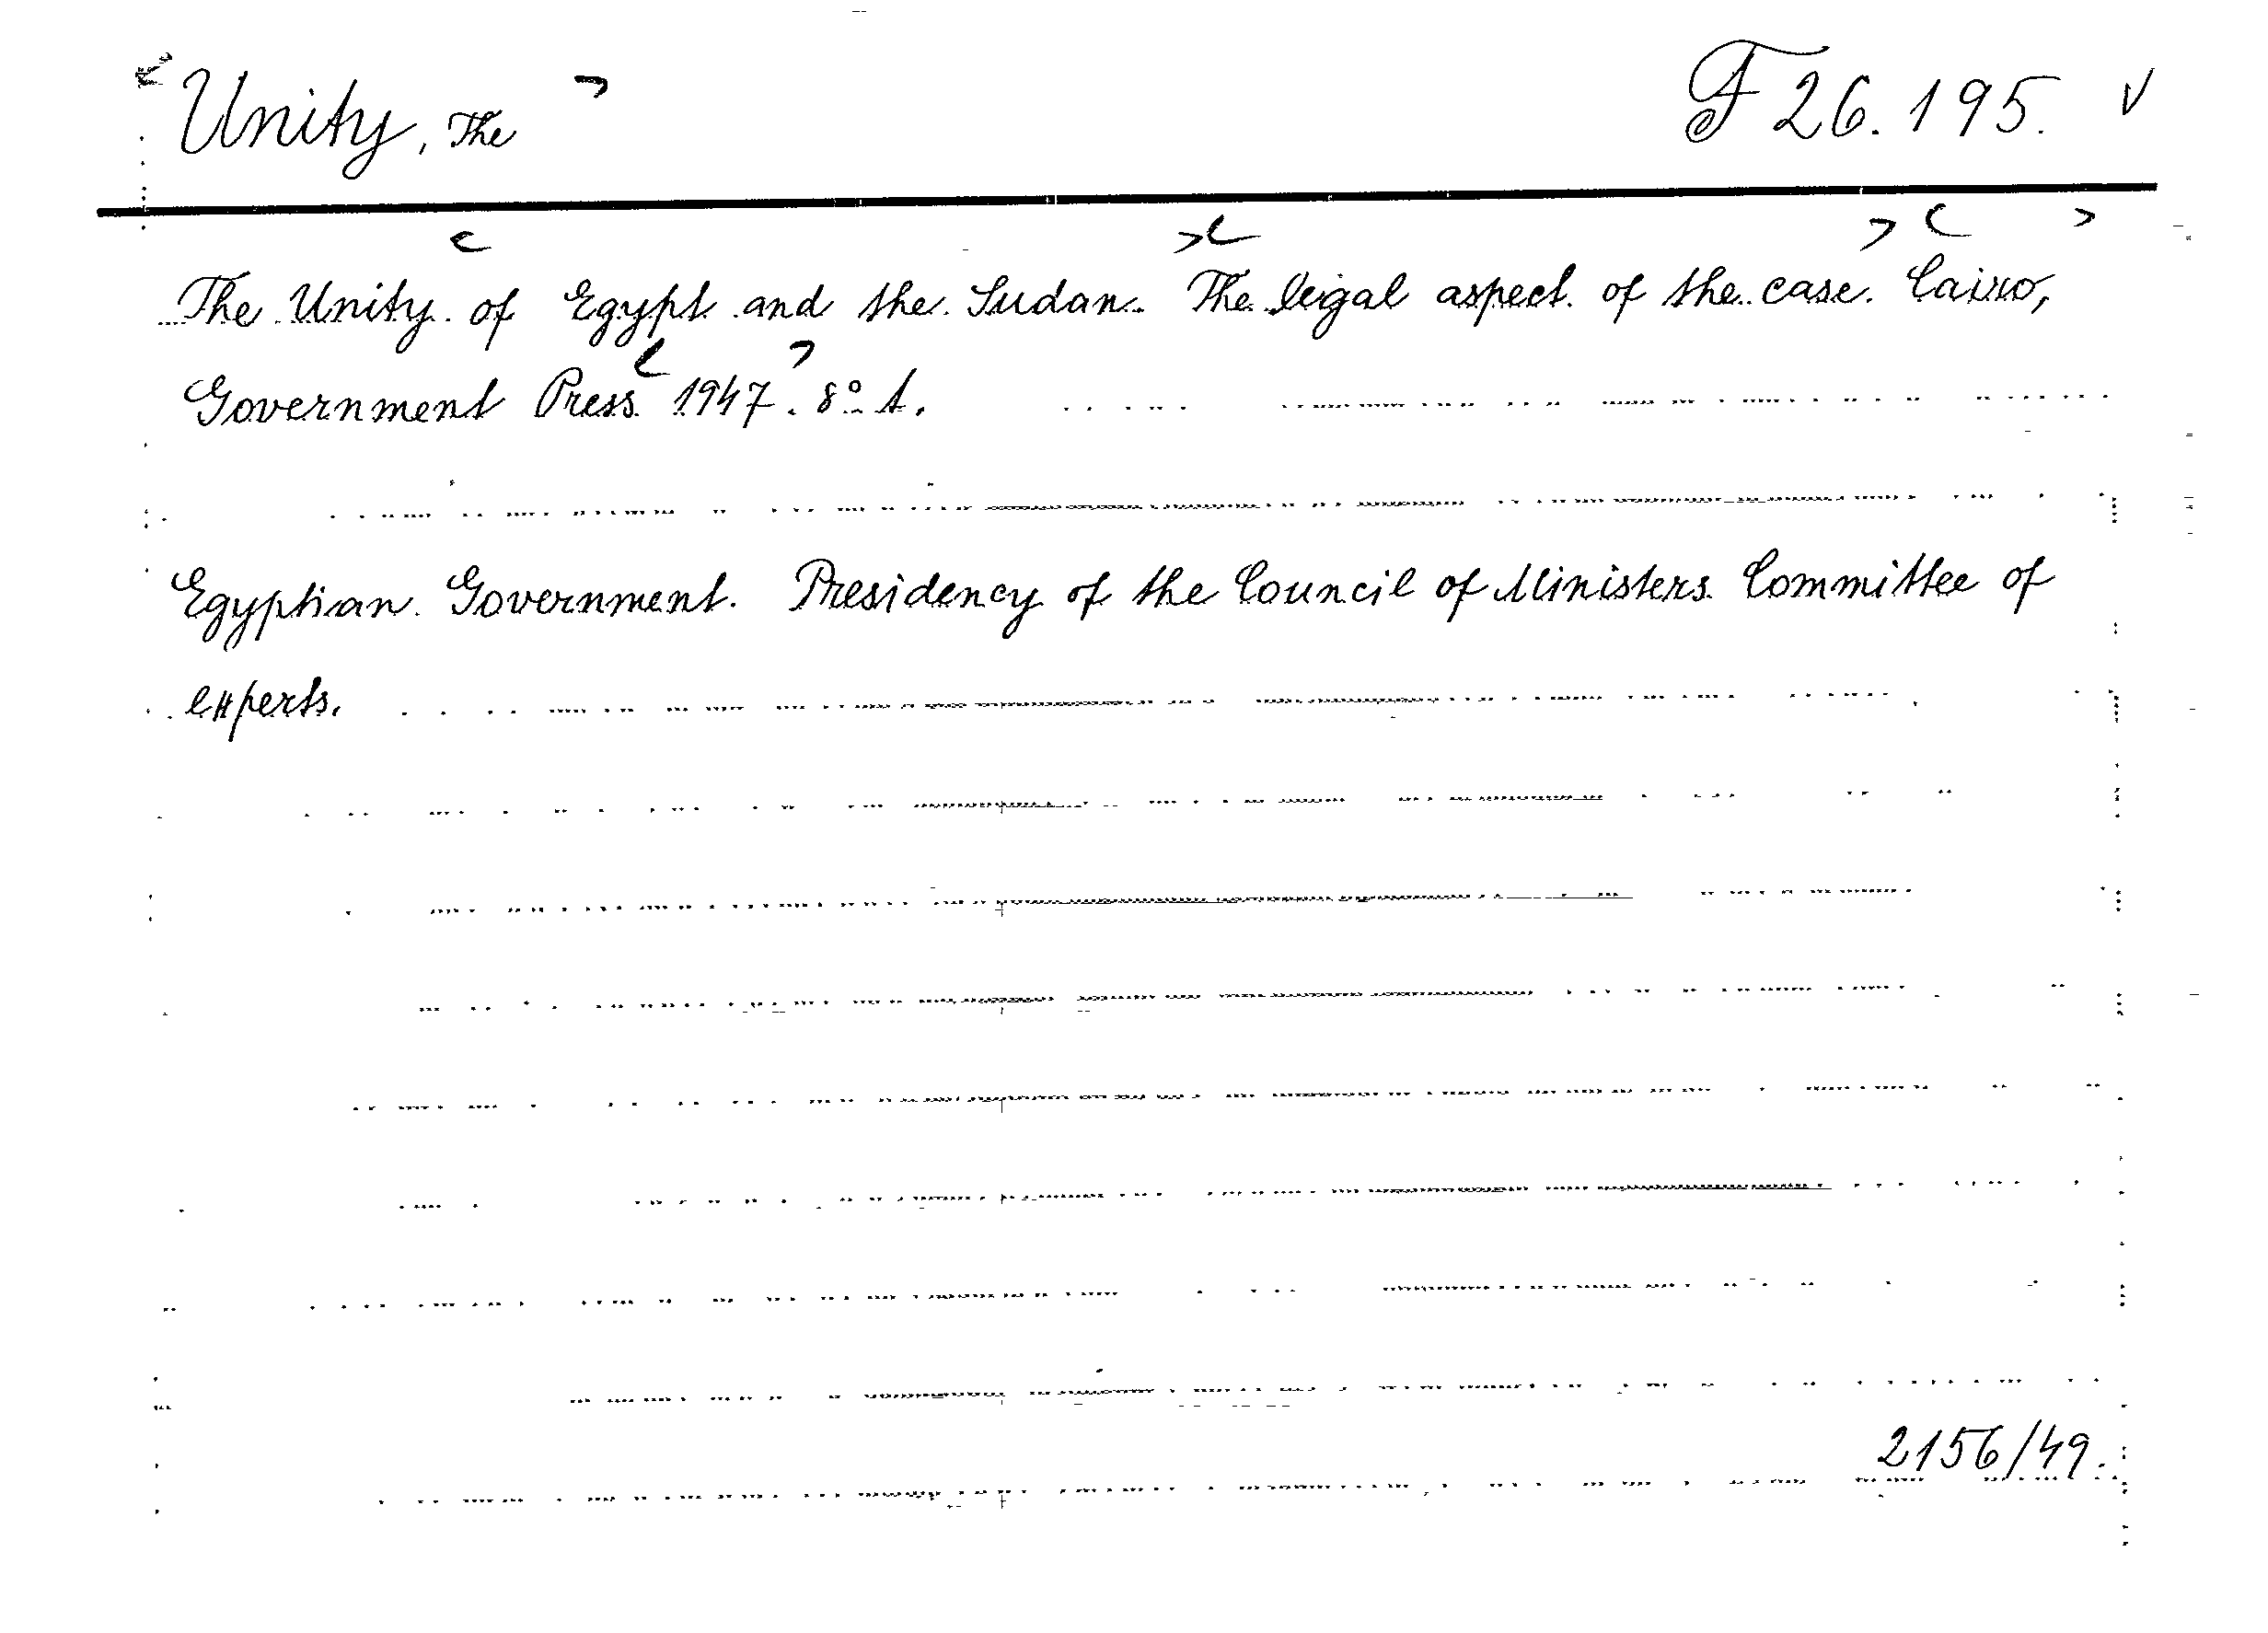 Unity, The F 26.195.
The Unity of Egypt and the Sudan. The legal aspect of the case. Cairo,
Government Press 1947. 8° t.
Egyptian Government. Presidency of the Council of Ministers Committee of
experts.
2156/49.